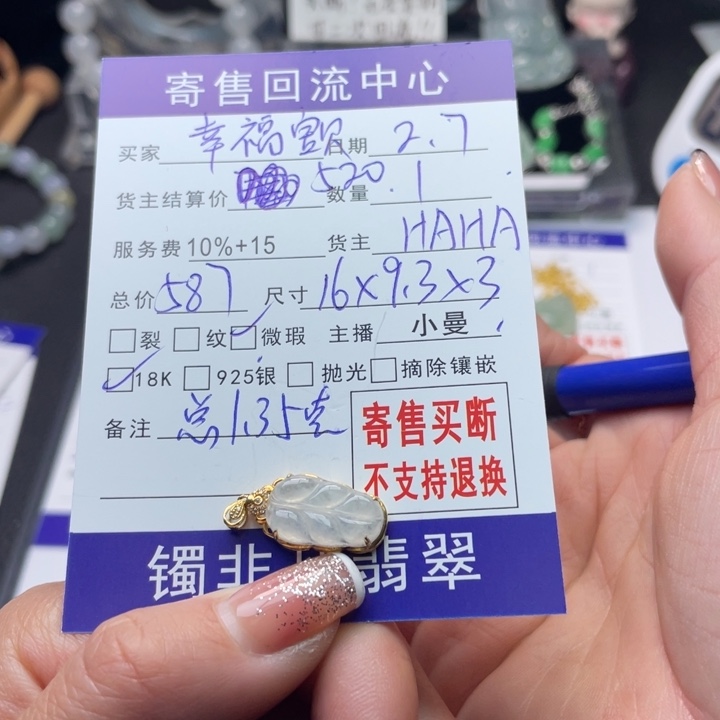 寄售回流中心
买家 幸福 日期 2.7
货主结算价 520. 数量 1
服务费 10%+15 货主 HAHA
总价 587 尺寸 16×9.3×3
裂 纹 微瑕 主播 小曼
18K 925银 抛光 摘除镶嵌
备注 总1.35克
寄售买断
不支持退换
镯非 翡翠